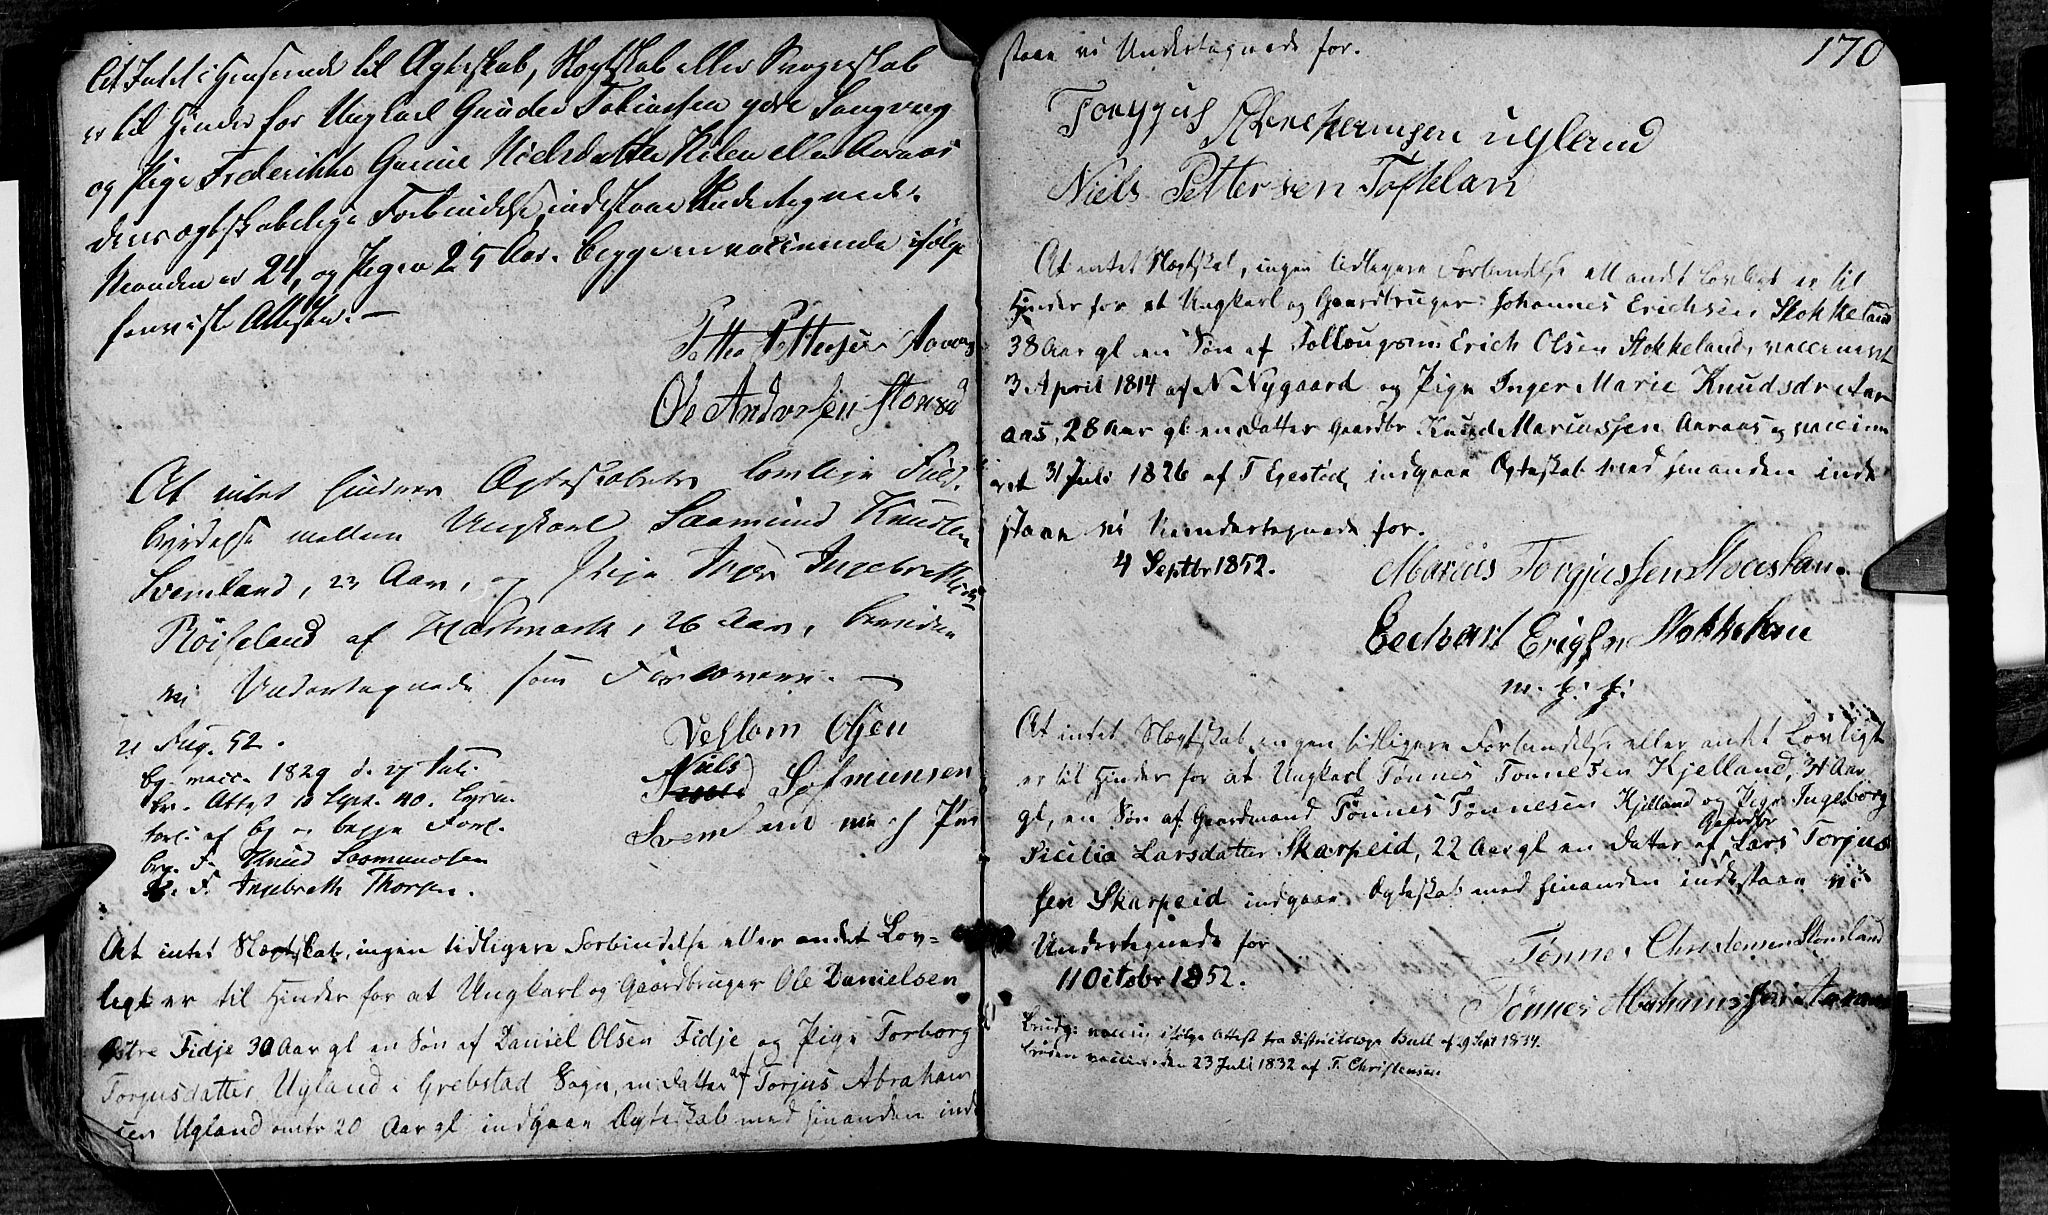 At Intet i Henseende til Ægteskab, Slegtskab eller Svogerskab
er til Hinder for Ungkarl Gunder Tobiassen ydre Langvug
og Pige Frederikke Gurine Nielsdatter Kilen eller Aaraas
deres ægteskabelige Forbindelse, indestaae Undertegnede.
Manden er 24, og Pigen 25 Aar. Begge ere vaccinerede ifølge
foreviste Attester. —
Petter Pettersen Aaraas
Ole Andersen
At intet hindrer Ægteskabets lovlige Fuld-
byrdelse mellem Ungkarl Saamund Knudsen
Sveinland, 23 Aar, og Pige Inger Ingebretsdatter
Røiseland af 26 Aar, bevidne
vi Undertegnede som Forlovere. —
21 Aug. 52.
Bg. vacc. 1829 d. 27 Juli.
br. Attest 10 Sept. 40.
Forl: af Bg og begge Forl.
brg. F. Knud Saamundsen
F. Ingebreth Thorsen.
Vestom Olsen
Niels Søfmunsen
Sveinland med Pen
At intet Slægtskab, ingen tidligere Forbindelse eller andet Lov-
ligt er til Hinder for at Ungkarl og Gaardbruger Ole Danielsen
Østre Fidje 30 Aar gl en Søn af Daniel Olsen Fidje og Pige Torborg
Torjusdatter Ugland i Grebstad Sogn, en Datter af Torjus Abraham
sen Ugland omtr 20 Aar gl indgaae Ægteskab med hinanden inde
170
staae vi Undertegnede for.
Torgjus Abrehamsen Ugland
Niels Pettersen Toftelan
At intet Slægtskab, ingen tidligere Forbindelse ell andet Lovligt er til
Hinder for at Ungkarl og Gaardbruger Johannes Erichsen Stokkeland
38 Aar gl en Søn af Erich Olsen Stokkeland, vaccineret
3 April 1814 af N Nygaard og Pige Inger Marie Knudsdr Aar
aas, 28 Aar gl en Datter Gaardbr Knud Mariussen Aaraas og vaccine
ret 31 Juli 1826 af T Egestød, indgaae Ægteskab med hinanden inde
staae vi Undertegnede for.
4 Septbr 1852.
Marius Torgjussen
Eechart Erigsen Stokkelan
m. f. P.
At intet Slægtskab, ingen tidligere Forbindelse eller andet Lovligt
er til Hinder for at Ungkarl Tønnes Tønnesen Kjelland, 31 Aar
gl, en Søn af Gaardmand Tønnes Tønnesen Kjelland og Pige Ingeborg
Sicilia Larsdatter Skarpeid, 22 Aar gl en Datter af Gaardbr Lars Torjus
sen Skarpeid indgaae Ægteskab med hinanden indestaae vi
Undertegnede for
11 Octobr 1852.
Tønnes Christensen Stomland
Tønnes Abrahamsen Aaraas
Brudg: vaccin ifølge Attest fra Districtslæge Bull af 9 Sept 1834.
Bruden vaccin: den 23 Juli 1832 af F. Christensen